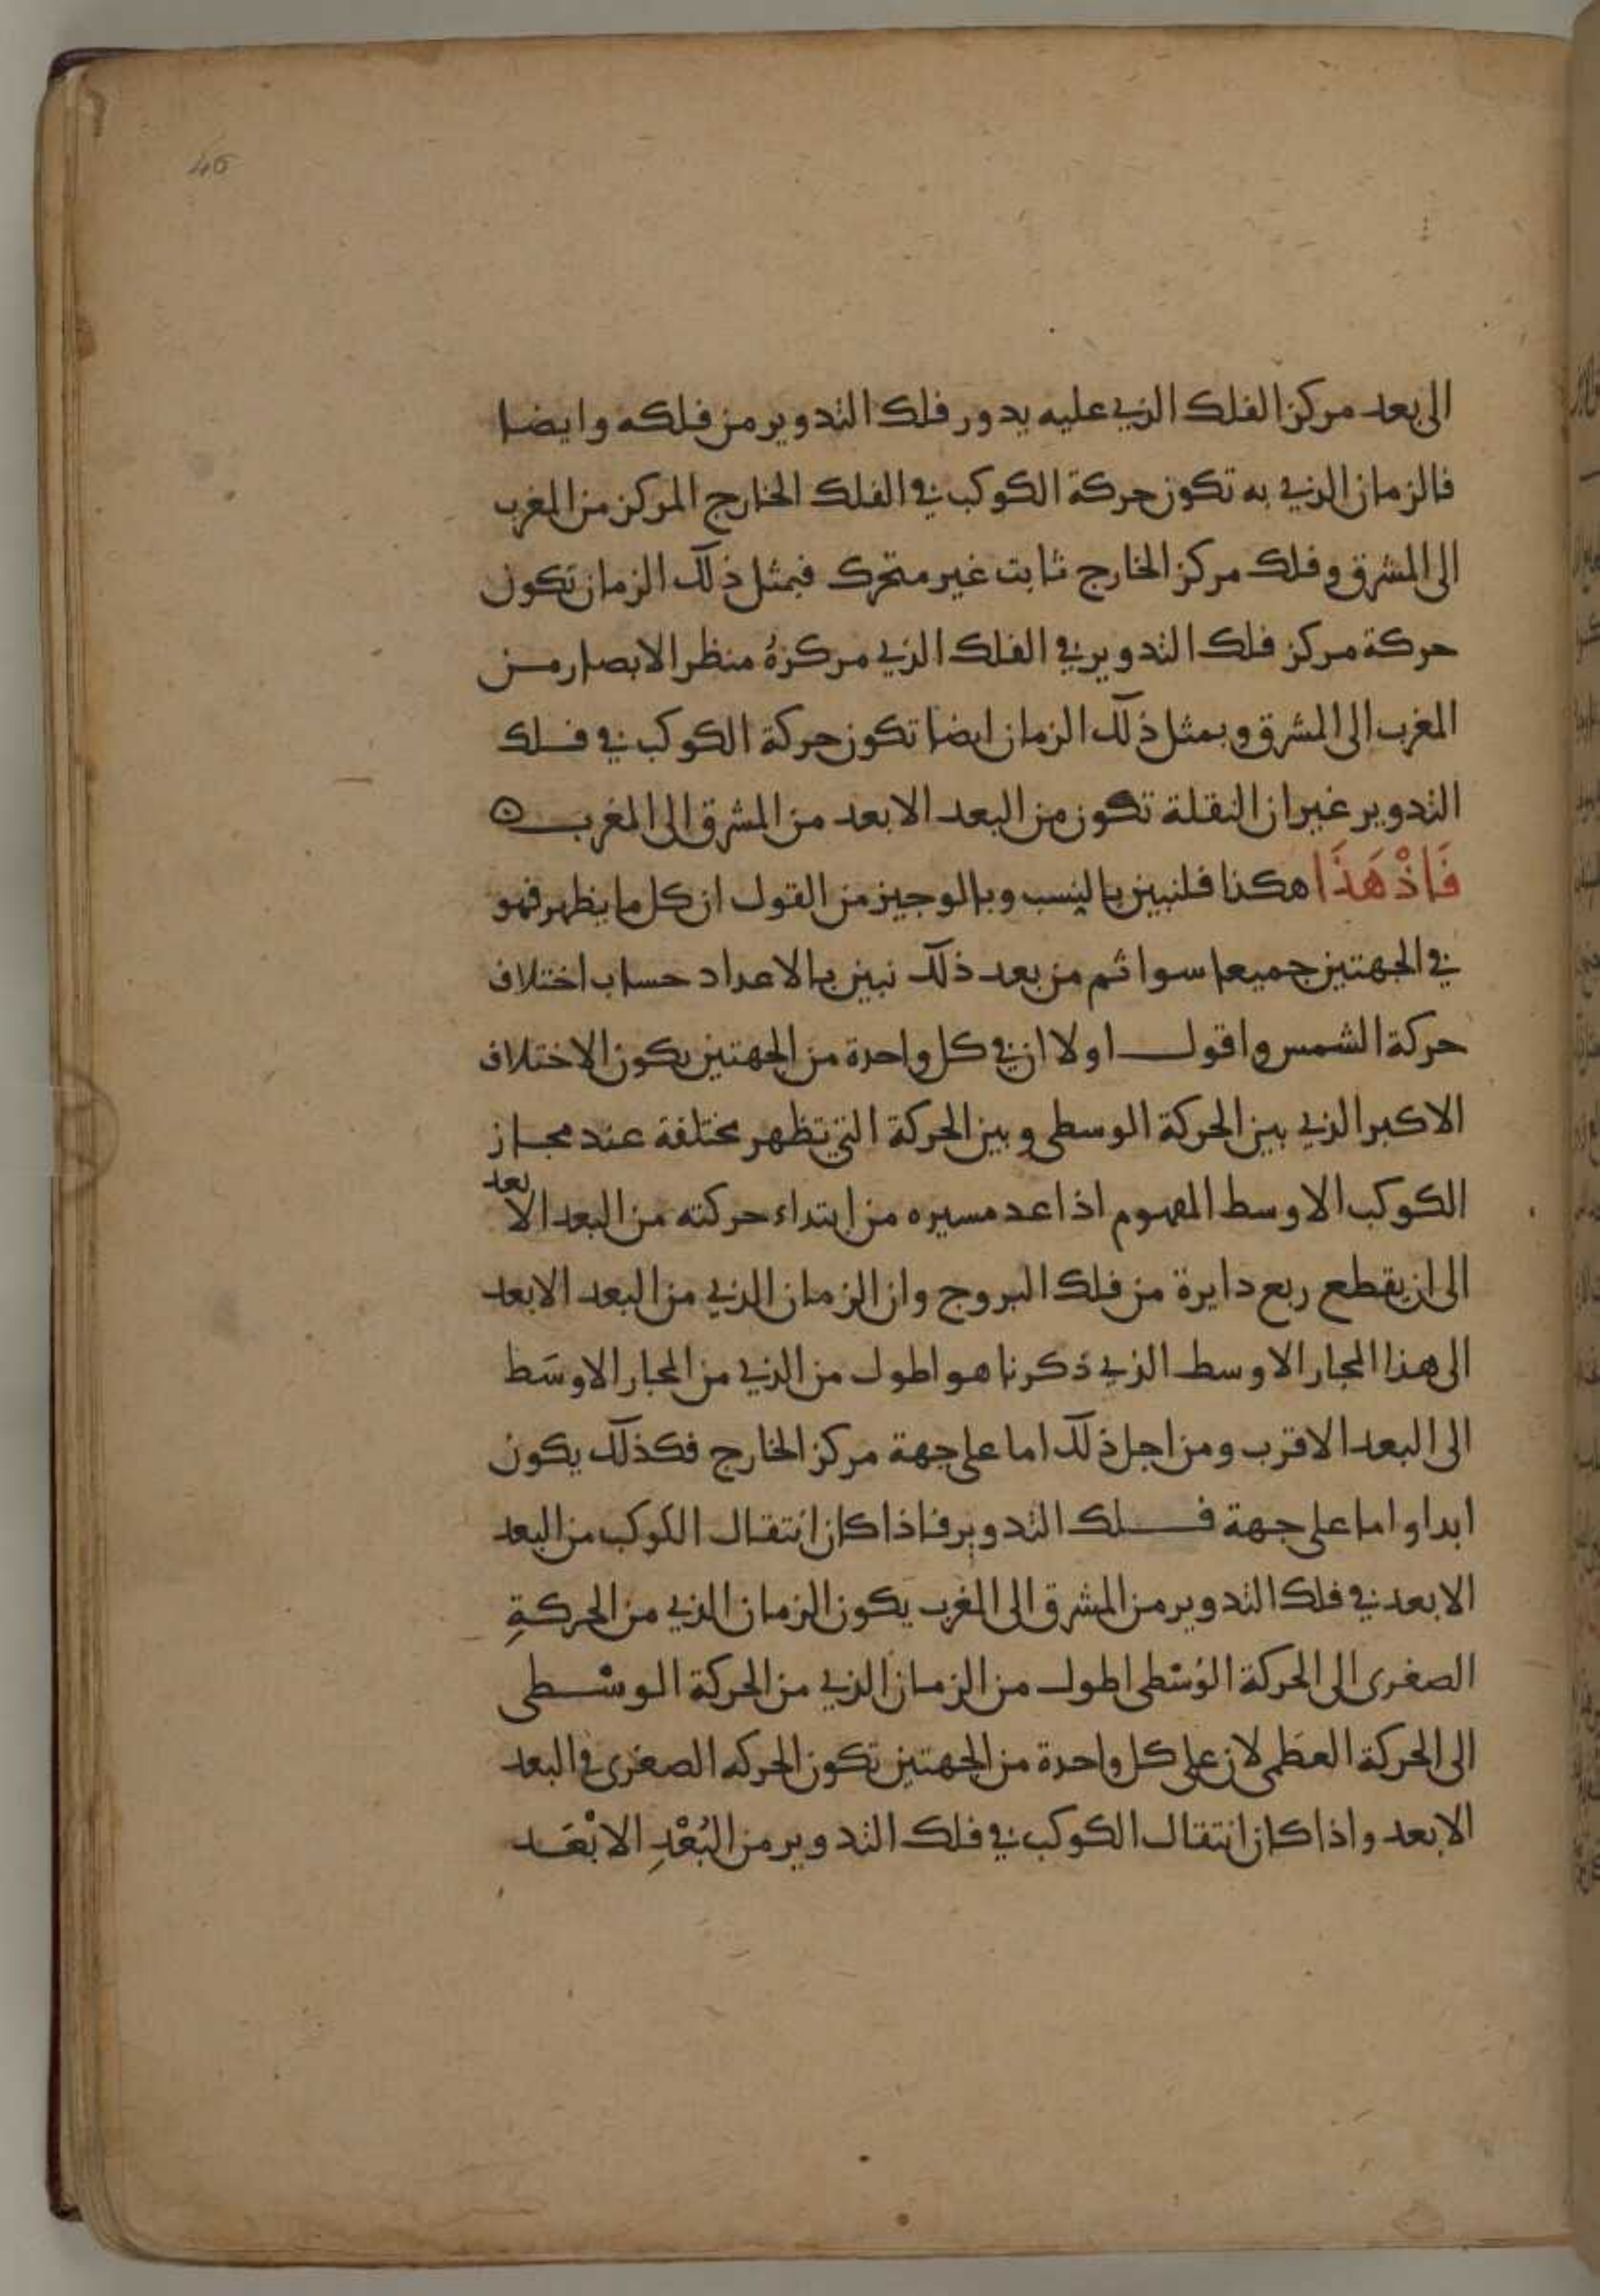 46
الى بعد مركز الفلك الذي عليه يدور فلك التدوير من فلكه وايضا
فالزمان الذي به تكون حركة الكوكب في الفلك الخارج المركز من المغرب
الى المشرق وفلك مركز الخارج ثابت غير متحرك فبمثل ذلك الزمان تكون
حركة مركز فلك التدوير في الفلك الذي مركزهُ منظر الابصار من
المغرب الى المشرق وبمثل ذلك الزمان ايضا تكون حركة الكوكب في فلك
التدوير غير ان النقلة تكون من البعد الابعد من المشرق الى المغرب
فَاذْ هَذَا هكذا فلنبين بالنسب وبالوجيز من القول ان كل ما يظهر فهو
في الجهتين جميعا سوا ثم من بعد ذلك نبين بالاعداد حساب اختلاف
حركة الشمس واقول اولا ان في كل واحدة من الجهتين يكون الاختلاف
الاكبر الذي بين الحركة الوسطى وبين الحركة التي تظهر مختلفة عند مجاز
الكوكب الاوسط المفهوم اذا عد مسيره من ابتداء حركته من البعد الابعد
الى ان يقطع ربع دايرة من فلك البروج وان الزمان الذي من البعد الابعد
الى هذا المجار الاوسط الذي ذكرنا هو اطول من الذي من المجار الاوسَط
الى البعد الاقرب ومن اجل ذلك اما على جهة مركز الخارج فكذلك يكون
ابدا واما على جهة فلك التدوير فاذا كان انتقال الكوكب من البعد
الابعد في فلك التدوير من المشرق الى المغرب يكون الزمان الذي من الحركةِ
الصغرى الى الحركة الوُسْطى اطول من الزمان الذي من الحركة الوسْطى
الى الحركة العظمى لان على كل واحدة من الجهتين تكون الحركه الصغرى في البعد
الابعد واذا كان انتقال الكوكب في فلك التدوير من البُعْدِ الابْعَد